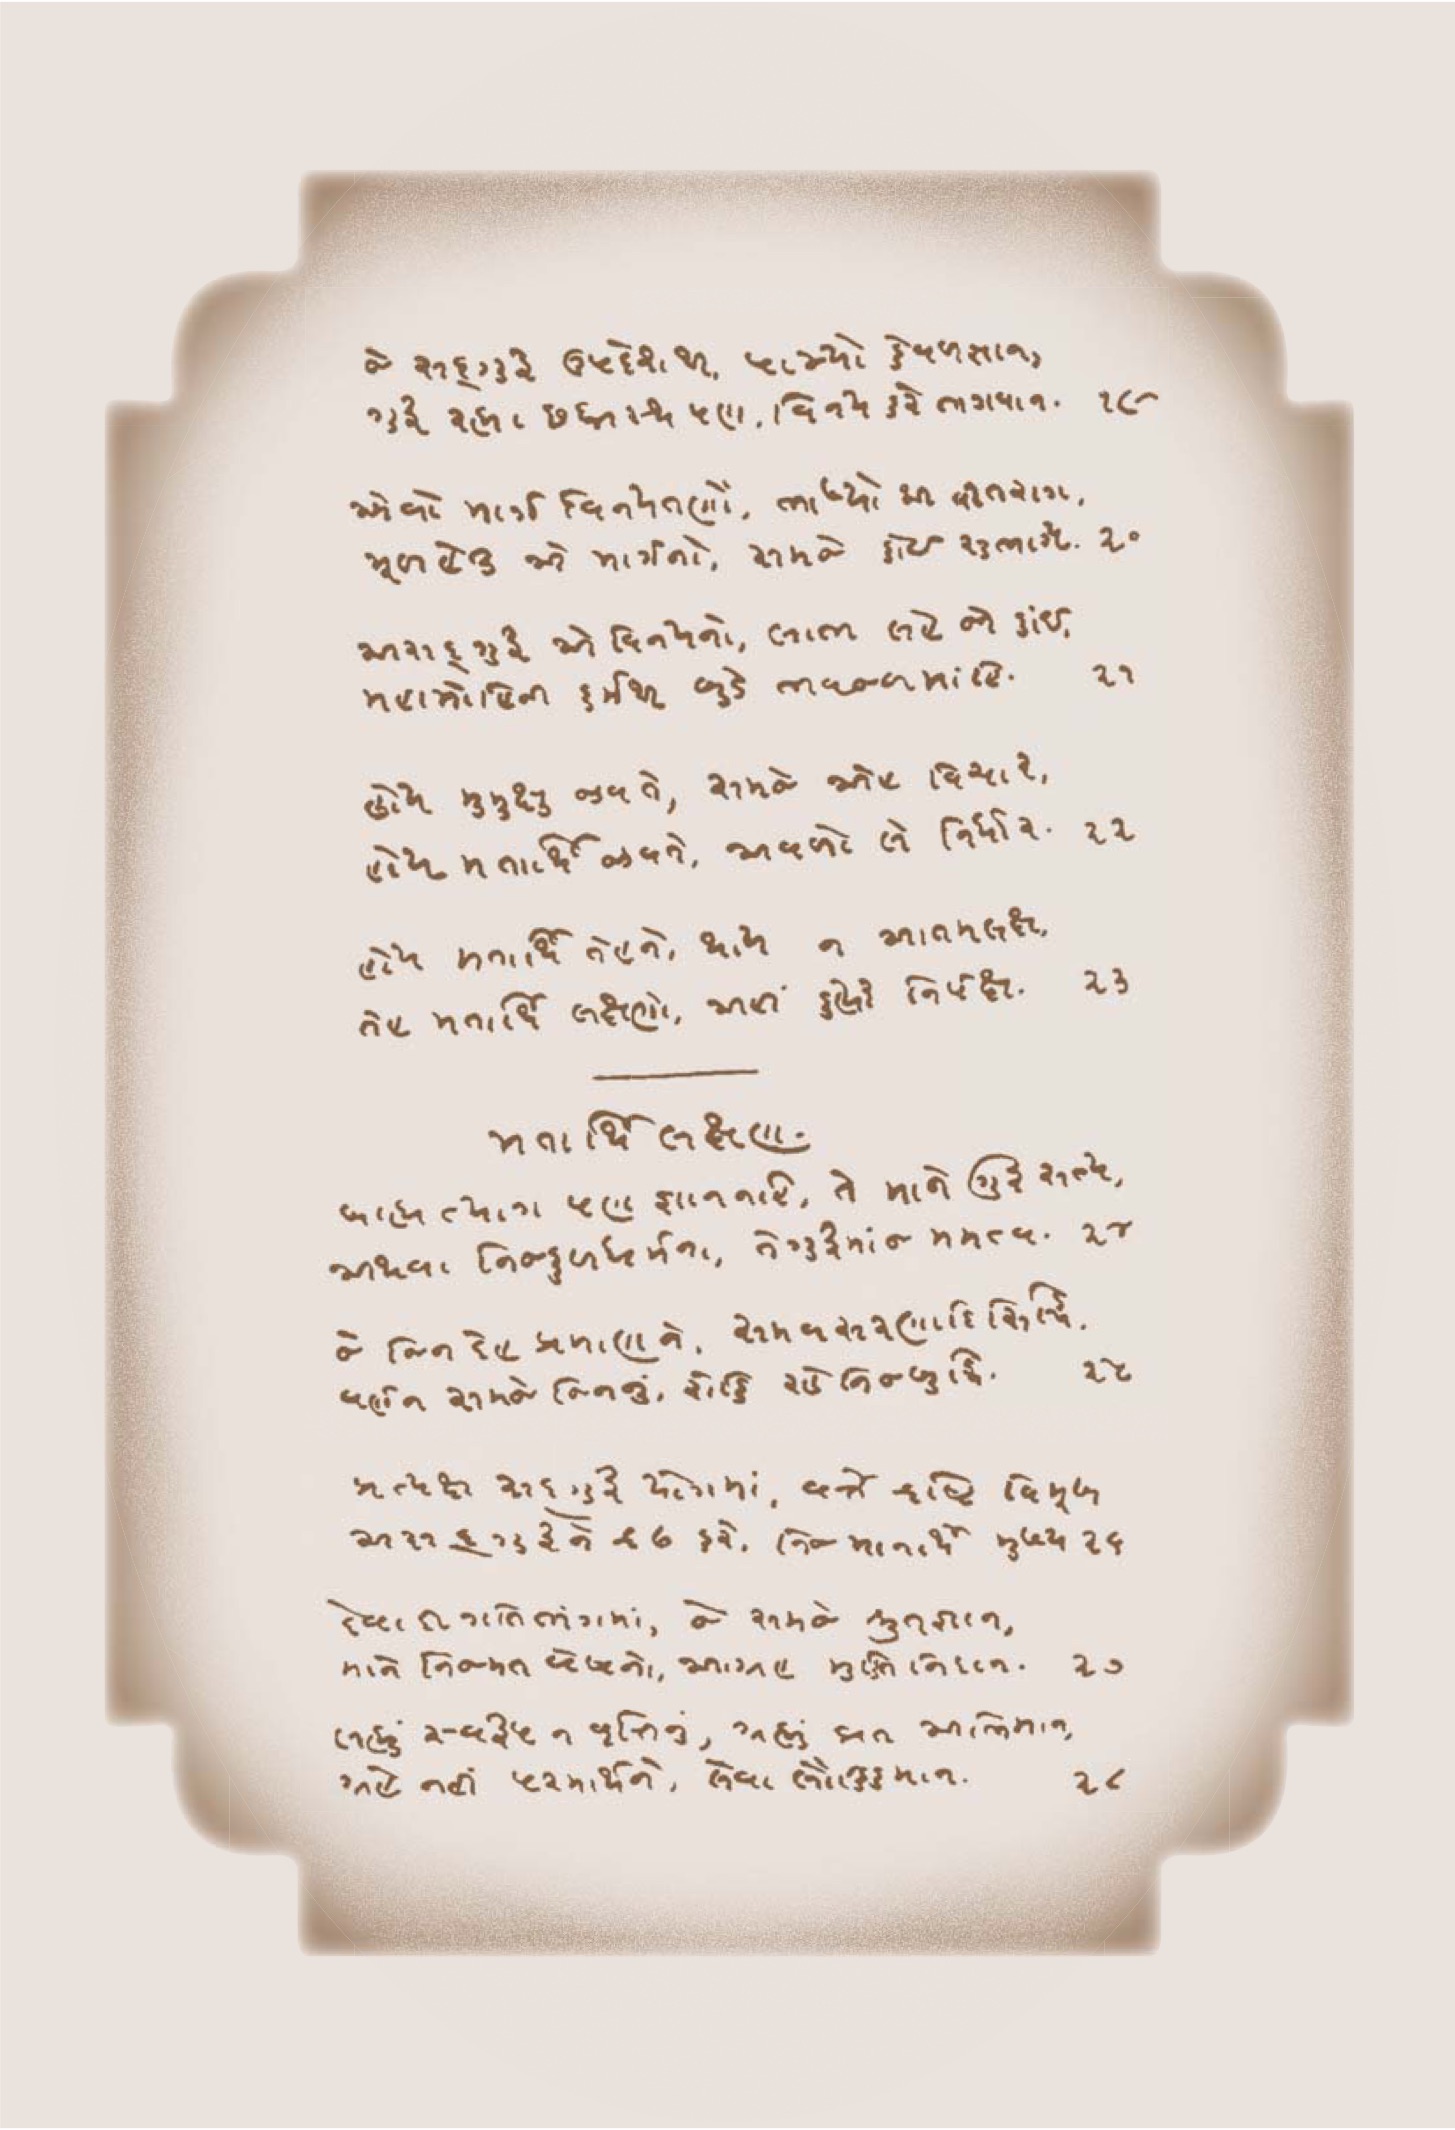 જે સદ્ગુરુ ઉપદેશથી, પામ્યો કેવળજ્ઞાન,
ગુરુ રહ્યા છદ્મસ્થ પણ, વિનય કરે ભગવાન. ૧૯
એવો માર્ગ વિનયતણો, ભાખ્યો શ્રી વીતરાગ,
મૂળ હેતુ એ માર્ગનો, સમજે કોઈ સુભાગ્ય. ૨૦
અસદ્ગુરુ એ વિનયનો, લાભ લહે જો કાંઈ,
મહામોહિની કર્મથી બુડે ભવજળમાંહિ. ૨૧
હોય મુમુક્ષુ જીવ તે, સમજે એહ વિચાર,
હોય મતાર્થિ જીવ તે, અવળો લે નિર્ધાર. ૨૨
હોય મતાર્થિ તેહને, થાય ન આતમલક્ષ,
તેહ મતાર્થિ લક્ષણો, અહીં કહ્યાં નિર્પક્ષ. ૨૩
મતાર્થિ લક્ષણ.
બાહ્ય ત્યાગ પણ જ્ઞાન નહિ, તે માને ગુરુ સત્ય,
અથવા નિજકુળધર્મના, તે ગુરુમાં જ મમત્વ. ૨૪
જે જિનદેહ પ્રમાણને, સમવસરણાદિ સિદ્ધિ.
વર્ણન સમજે જિનનું, રોકિ રહે નિજબુદ્ધિ. ૨૫
પ્રત્યક્ષ સદ્ગુરુ યોગમાં, વર્ત્તે દૃષ્ટિ વિમૂખ
અસદ્ગુરુને દૃઢ કરે, નિજ માનાર્થે મુખ્ય ૨૬
દેવાદી ગતિ ભંગમાં, જે સમજે શ્રુતજ્ઞાન,
માને નિજમત વેષનો, આગ્રહ મુક્તિ નિદાન. ૨૭
લહ્યું સ્વરૂપ ન વૃત્તિનું, ગ્રહ્યું વ્રત અભિમાન,
ગ્રહે નહીં પરમાર્થને, લેવા લૌકિક માન. ૨૮